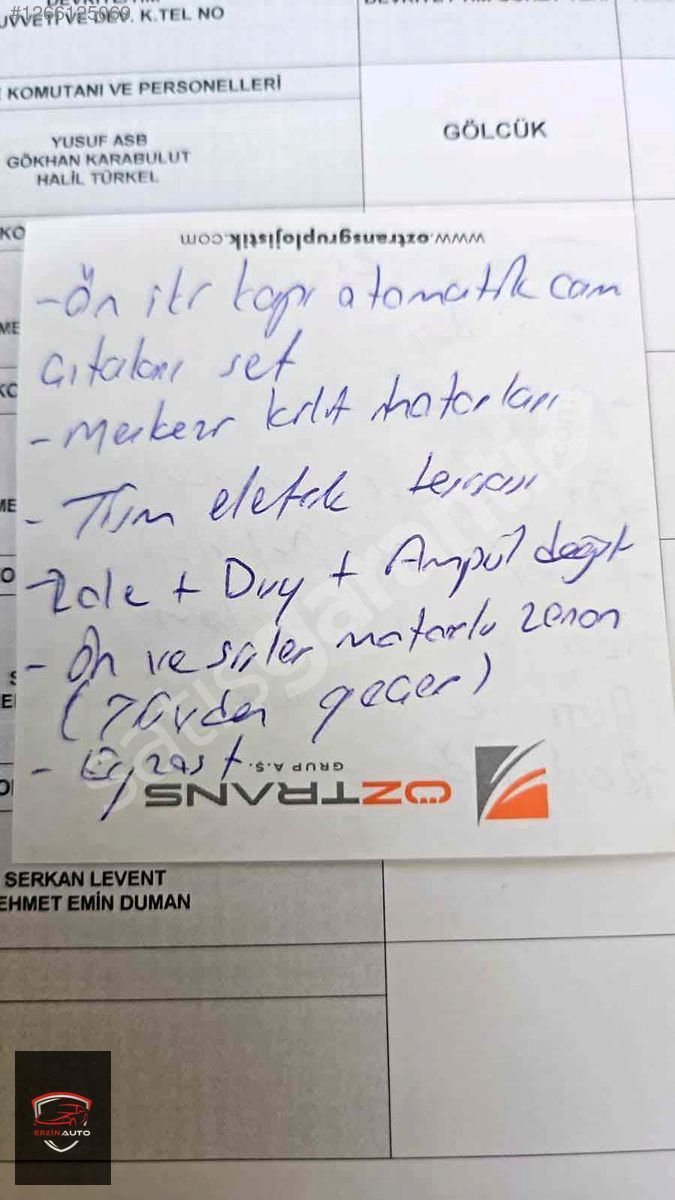 #1266125069
UVVETİ VE DEV. K.TEL NO
KOMUTANI VE PERSONELLERİ
YUSUF ASB
GÖKHAN KARABULUT
HALİL TÜRKEL
GÖLCÜK
www.oztransgruplojistik.com
- Ön iki kapı otomatik cam
çıtaları set
- Merkezi kilit motorları
- Tüm eletrik tesisatı
- Role + Duy + Ampül değişti
- Ön ve sisler motorlu zenon
(TÜVden geçer)
- Egzast
GRUP A.Ş.
ÖZTRANS
satisgarantig.com
SERKAN LEVENT
EHMET EMİN DUMAN
ERZİN AUTO